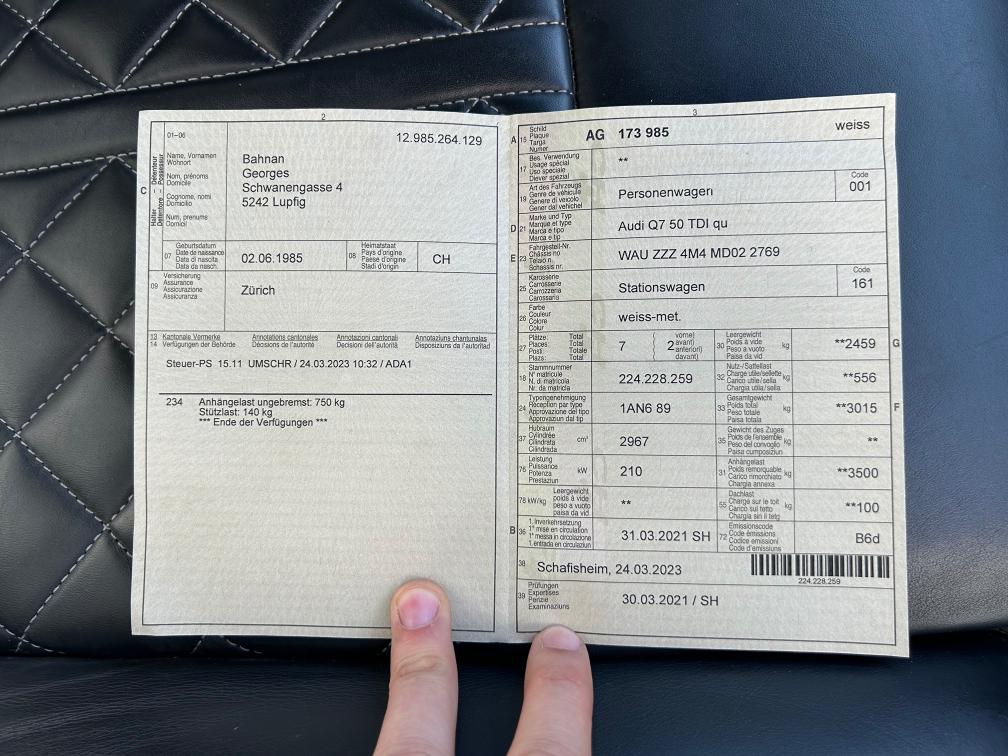 2
01–06
12.985.264.129
C
Halter – Détenteur
Detentore – Possessur
Name, Vornamen
Wohnort
Nom, prénoms
Domicile
Cognome, nomi
Domicilio
Num, prenums
Domicil
Bahnan
Georges
Schwanengasse 4
5242 Lupfig
07
Geburtsdatum
Date de naissance
Data di nascita
Data da nasch.
02.06.1985
08
Heimatstaat
Pays d'origine
Paese d'origine
Stadi d'origin
CH
09
Versicherung
Assurance
Assicurazione
Assicuranza
Zürich
13 Kantonale Vermerke Annotations cantonales Annotazioni cantonali Annotaziuns chantunalas
14 Verfügungen der Behörde Décisions de l'autorité Decisioni dell'autorità Disposiziuns da l'autoritad
Steuer-PS 15.11 UMSCHR / 24.03.2023 10:32 / ADA1
234 Anhängelast ungebremst: 750 kg
Stützlast: 140 kg
*** Ende der Verfügungen ***
3
A 15
Schild
Plaque
Targa
Numer
AG 173 985 weiss
17
Bes. Verwendung
Usage spécial
Uso speciale
Diever spezial
**
19
Art des Fahrzeugs
Genre de véhicule
Genere di veicolo
Gener dal vehichel
Personenwagen
Code
001
D 21
Marke und Typ
Marque et type
Marca e tipo
Marca e tip
Audi Q7 50 TDI qu
E 23
Fahrgestell-Nr.
Châssis no
Telaio n.
Schassis nr.
WAU ZZZ 4M4 MD02 2769
25
Karosserie
Carrosserie
Carrozzeria
Carossaria
Stationswagen
Code
161
26
Farbe
Couleur
Colore
Colur
weiss-met.
27
Plätze: Total
Places: Total
Posti: Totale
Plazs: Total
7
2
( vorne)
avant)
anteriori)
davant)
30
Leergewicht
Poids à vide
Peso a vuoto
Paisa da vid
kg
**2459
G
18
Stammnummer
N° matricule
N. di matricola
Nr. da matricla
224.228.259
32
Nutz-/Sattellast
Charge utile/sellette
Carico utile/sella
Chargia utila/sella
kg
**556
24
Typengenehmigung
Réception par type
Approvazione del tipo
Approvaziun dal tip
1AN6 89
33
Gesamtgewicht
Poids total
Peso totale
Paisa totala
kg
**3015
F
37
Hubraum
Cylindrée
Cilindrata
Cilindrada
cm³
2967
35
Gewicht des Zuges
Poids de l'ensemble
Peso del convoglio
Paisa cumposiziun
kg
**
76
Leistung
Puissance
Potenza
Prestaziun
kW
210
31
Anhängelast
Poids remorquable
Carico rimorchiato
Chargia annexa
kg
**3500
78 kW/kg
Leergewicht
poids à vide
peso a vuoto
paisa da vid
**
55
Dachlast
Charge sur le toit
Carico sul tetto
Chargia sin il tetg
kg
**100
B 36
1. Inverkehrsetzung
1re mise en circulation
1a messa in circolazione
1. entrada en circulaziun
31.03.2021 SH
72
Emissionscode
Code émissions
Codice emissioni
Code d'emissiuns
B6d
38
Schafisheim, 24.03.2023
224.228.259
39
Prüfungen
Expertises
Perizie
Examinaziuns
30.03.2021 / SH